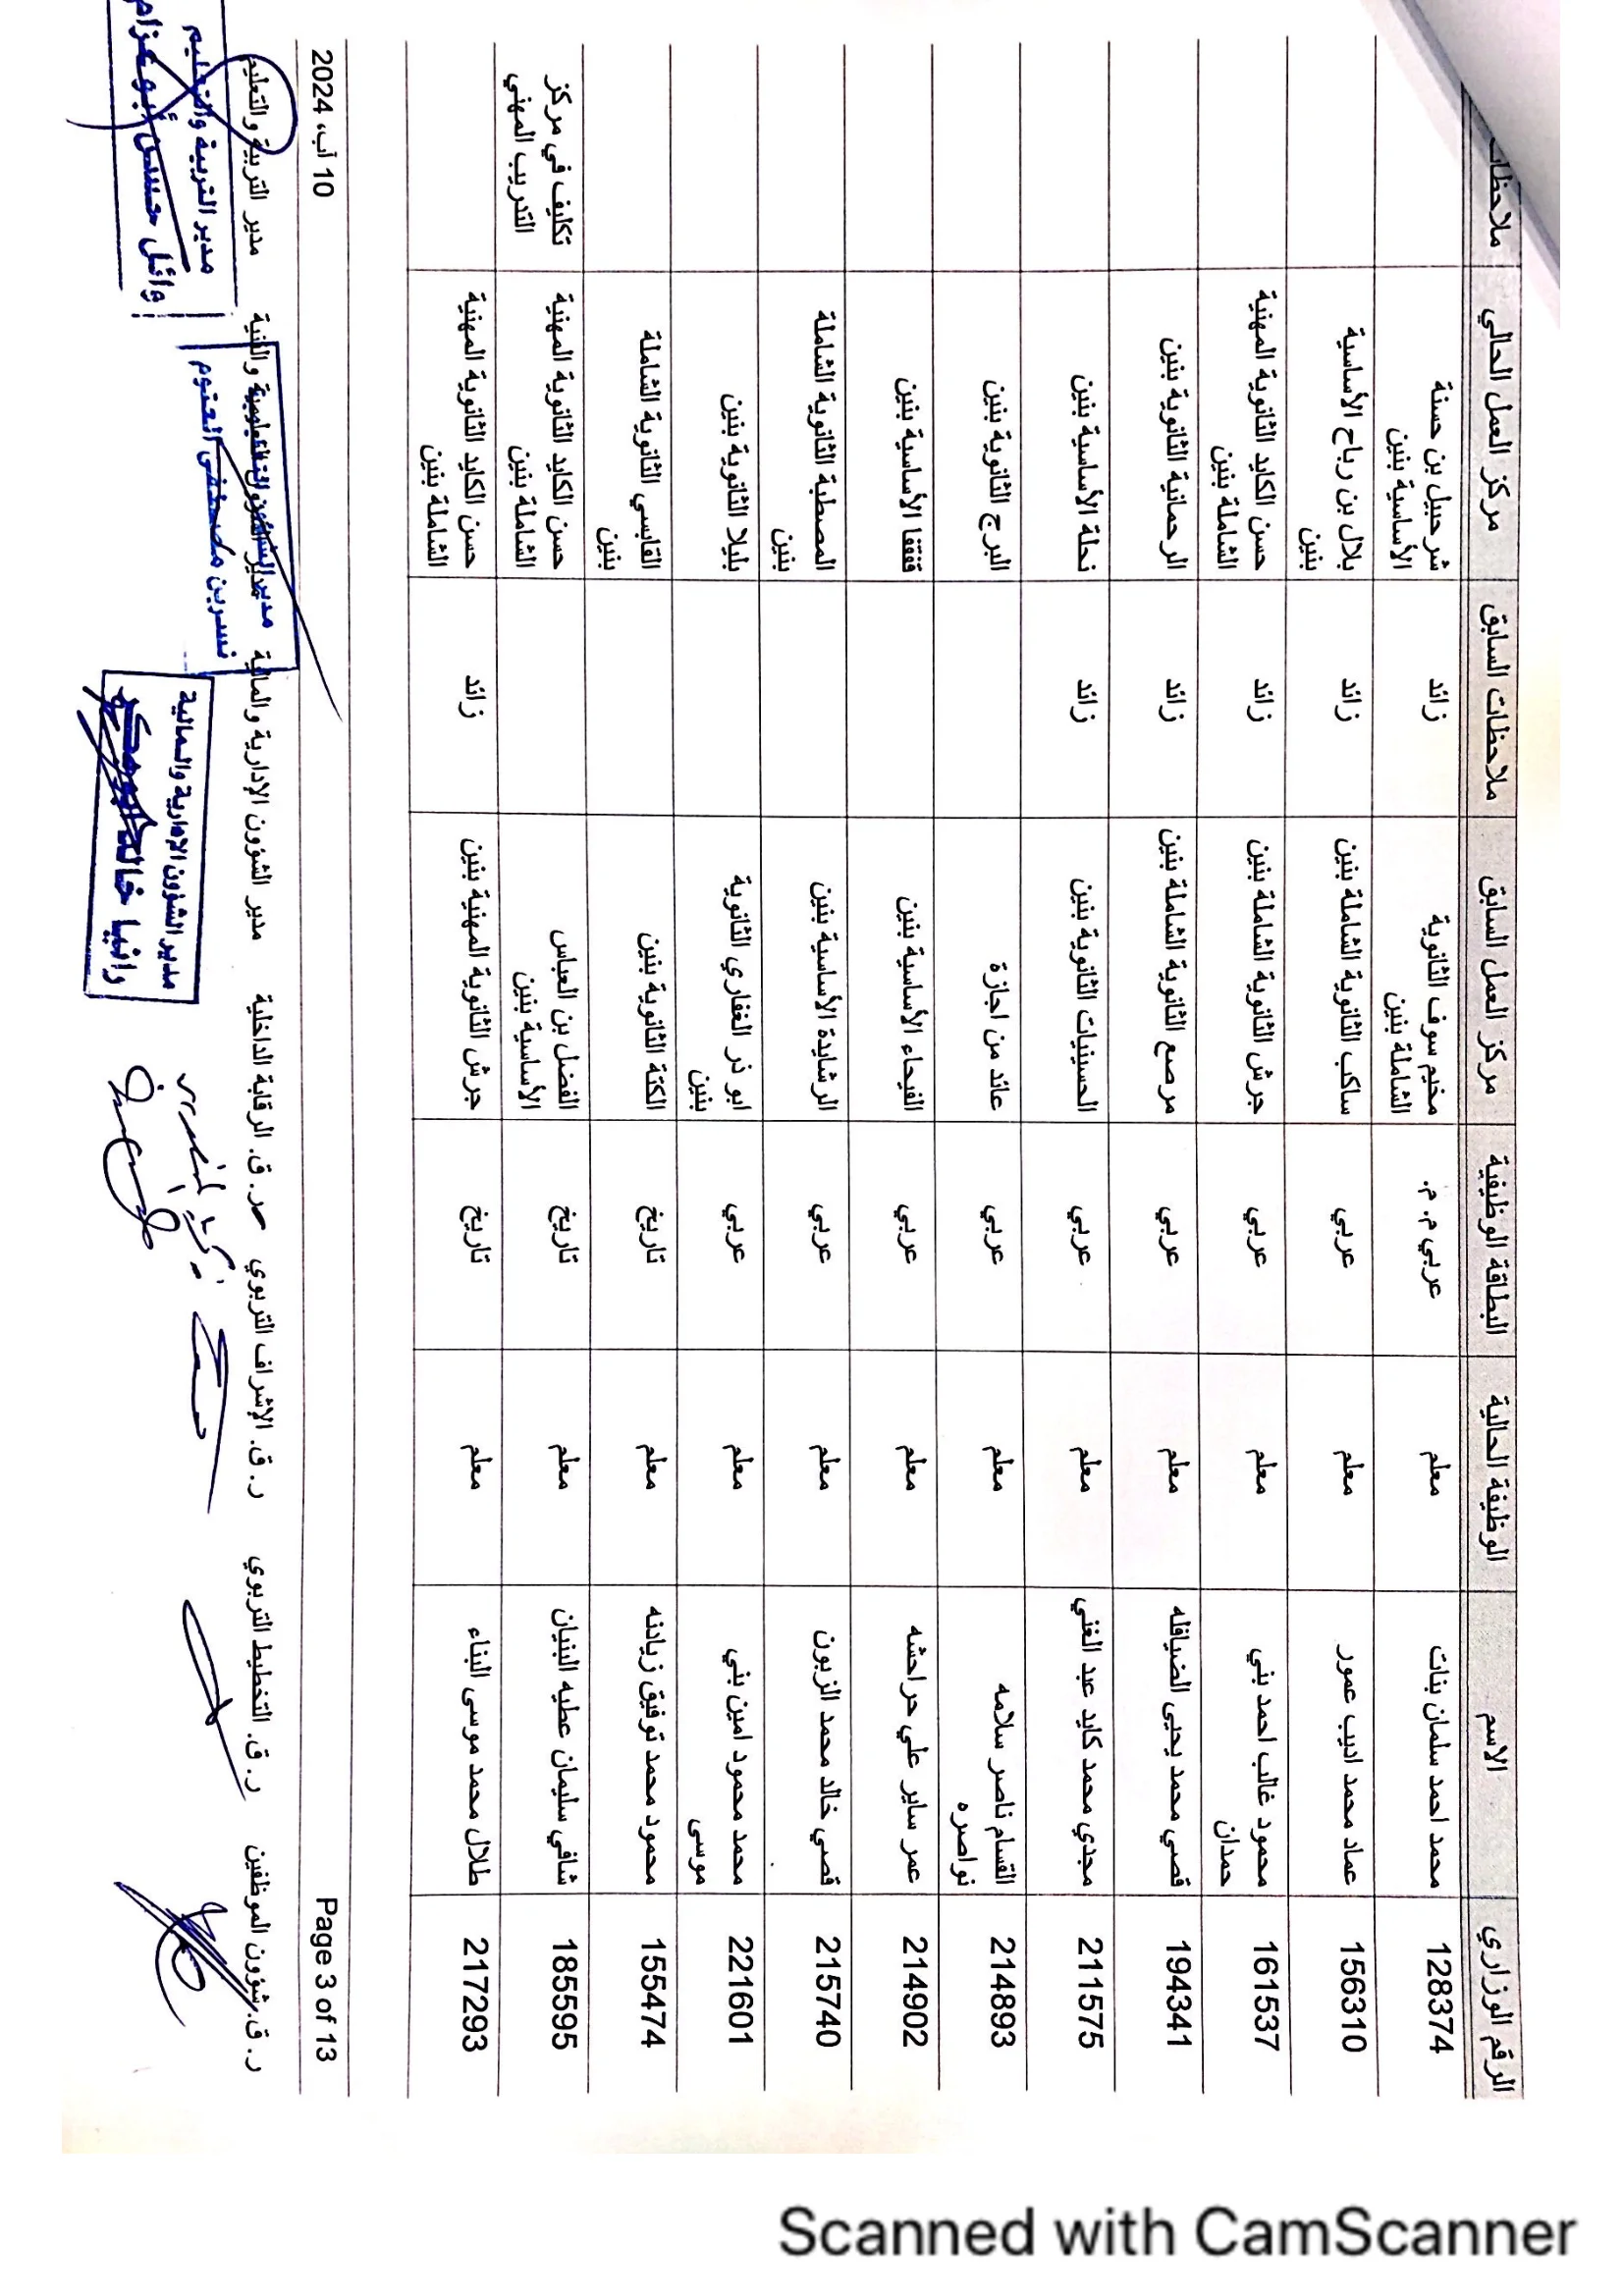 الرقم الوزاري الاسم الوظيفة الحالية البطاقة الوظيفية مركز العمل السابق ملاحظات السابق مركز العمل الحالي ملاحظات
128374 محمد احمد سلمان بنات معلم عربي م.م. مخيم سوف الثانوية زائد شرحبيل بن حسنة
الشاملة بنين الأساسية بنين
156310 عماد محمد اديب عمور معلم عربي ساكب الثانوية الشاملة بنين زائد بلال بن رباح الأساسية
بنين
161537 محمود غالب احمد بني معلم عربي جرش الثانوية الشاملة بنين زائد حسن الكايد الثانوية المهنية
حمدان الشاملة بنين
194341 قصي محمد يحيى الضيافله معلم عربي مرصع الثانوية الشاملة بنين زائد الرحمانية الثانوية بنين
211575 مجدي محمد كايد عبد الغني معلم عربي الحسينيات الثانوية بنين زائد نحلة الأساسية بنين
214893 القسام ناصر سلامه معلم عربي عائد من اجازة البرج الثانوية بنين
نواصره
214902 عمر ساير علي حراحشه معلم عربي الفيحاء الأساسية بنين قفقفا الأساسية بنين
215740 قصي خالد محمد الزبون معلم عربي الرشايدة الأساسية بنين المصطبة الثانوية الشاملة
بنين
221601 محمد محمود امين بني معلم عربي ابو ذر الغفاري الثانوية بليلا الثانوية بنين
موسى بنين
155474 محمود محمد توفيق زيادنه معلم تاريخ الكتة الثانوية بنين القابسي الثانوية الشاملة
بنين
185595 شافي سليمان عطيه البنيان معلم تاريخ الفضل بن العباس حسن الكايد الثانوية المهنية تكليف في مركز
الأساسية بنين الشاملة بنين التدريب المهني
217293 طلال محمد موسى البناء معلم تاريخ جرش الثانوية المهنية بنين زائد حسن الكايد الثانوية المهنية
الشاملة بنين
Page 3 of 13 10 آب، 2024
ر. ق. شؤون الموظفين ر. ق. التخطيط التربوي ر. ق. الإشراف التربوي ر. ق. الرقابة الداخلية مدير الشؤون الإدارية والمالية مدير الشؤون التعليمية والفنية مدير التربية والتعليم
مدير الشؤون الإدارية والمالية
رانيا خالد
نسرين مصطفى العتوم
مدير التربية والتعليم
وائل أبو عزام
Scanned with CamScanner